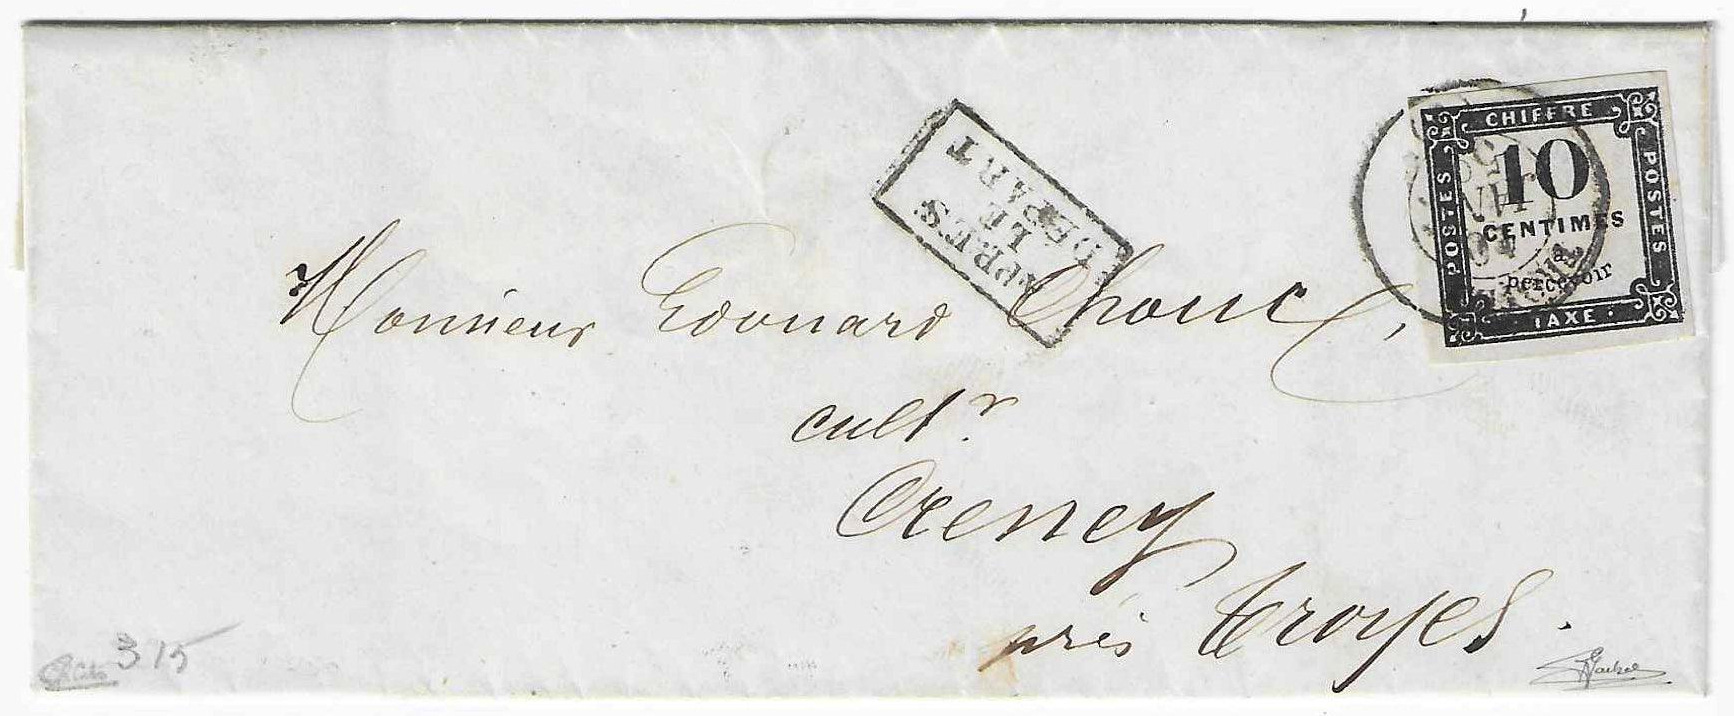 APRES
LE
DÉPART
CHIFFRE
POSTES
10
CENTIMES
à
percevoir
POSTES
· TAXE ·
Monsieur Edouard Thouc,
cultr
Creney
près Troyes.
315